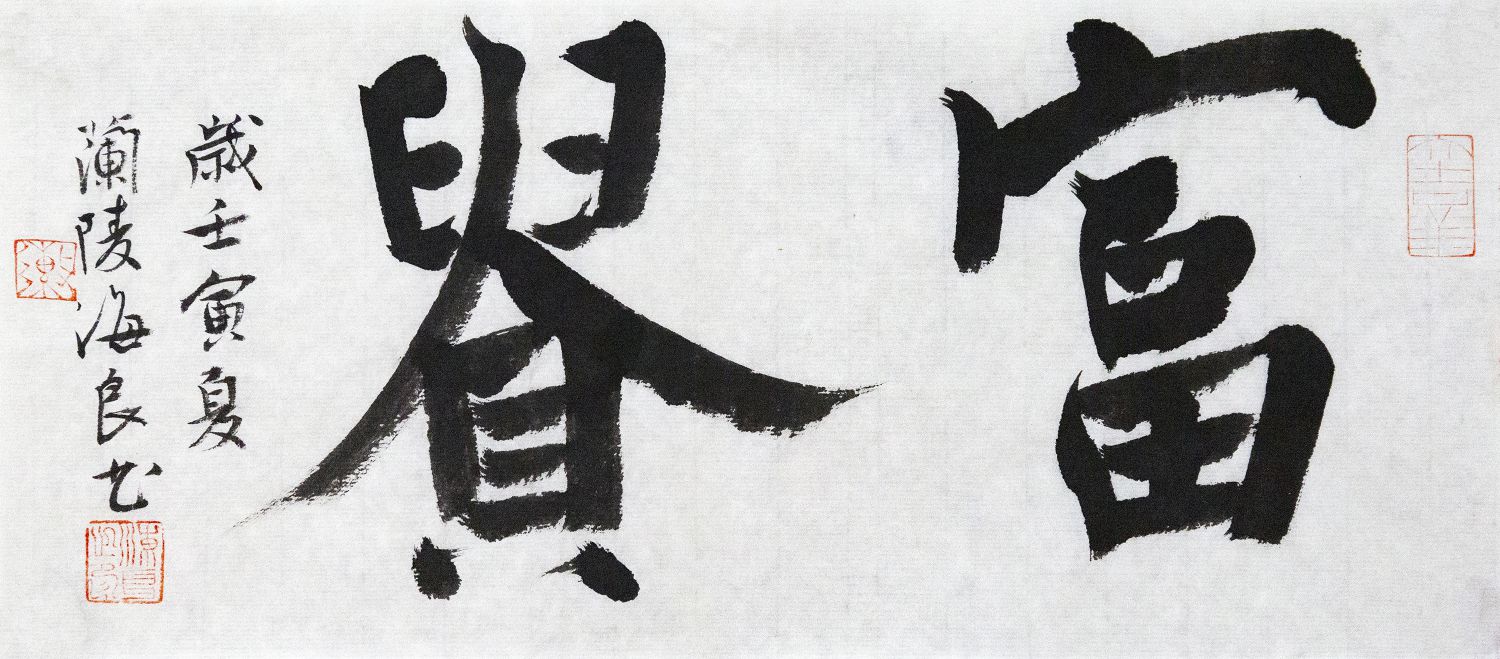 富貴
歲壬寅夏
蘭陵海良书